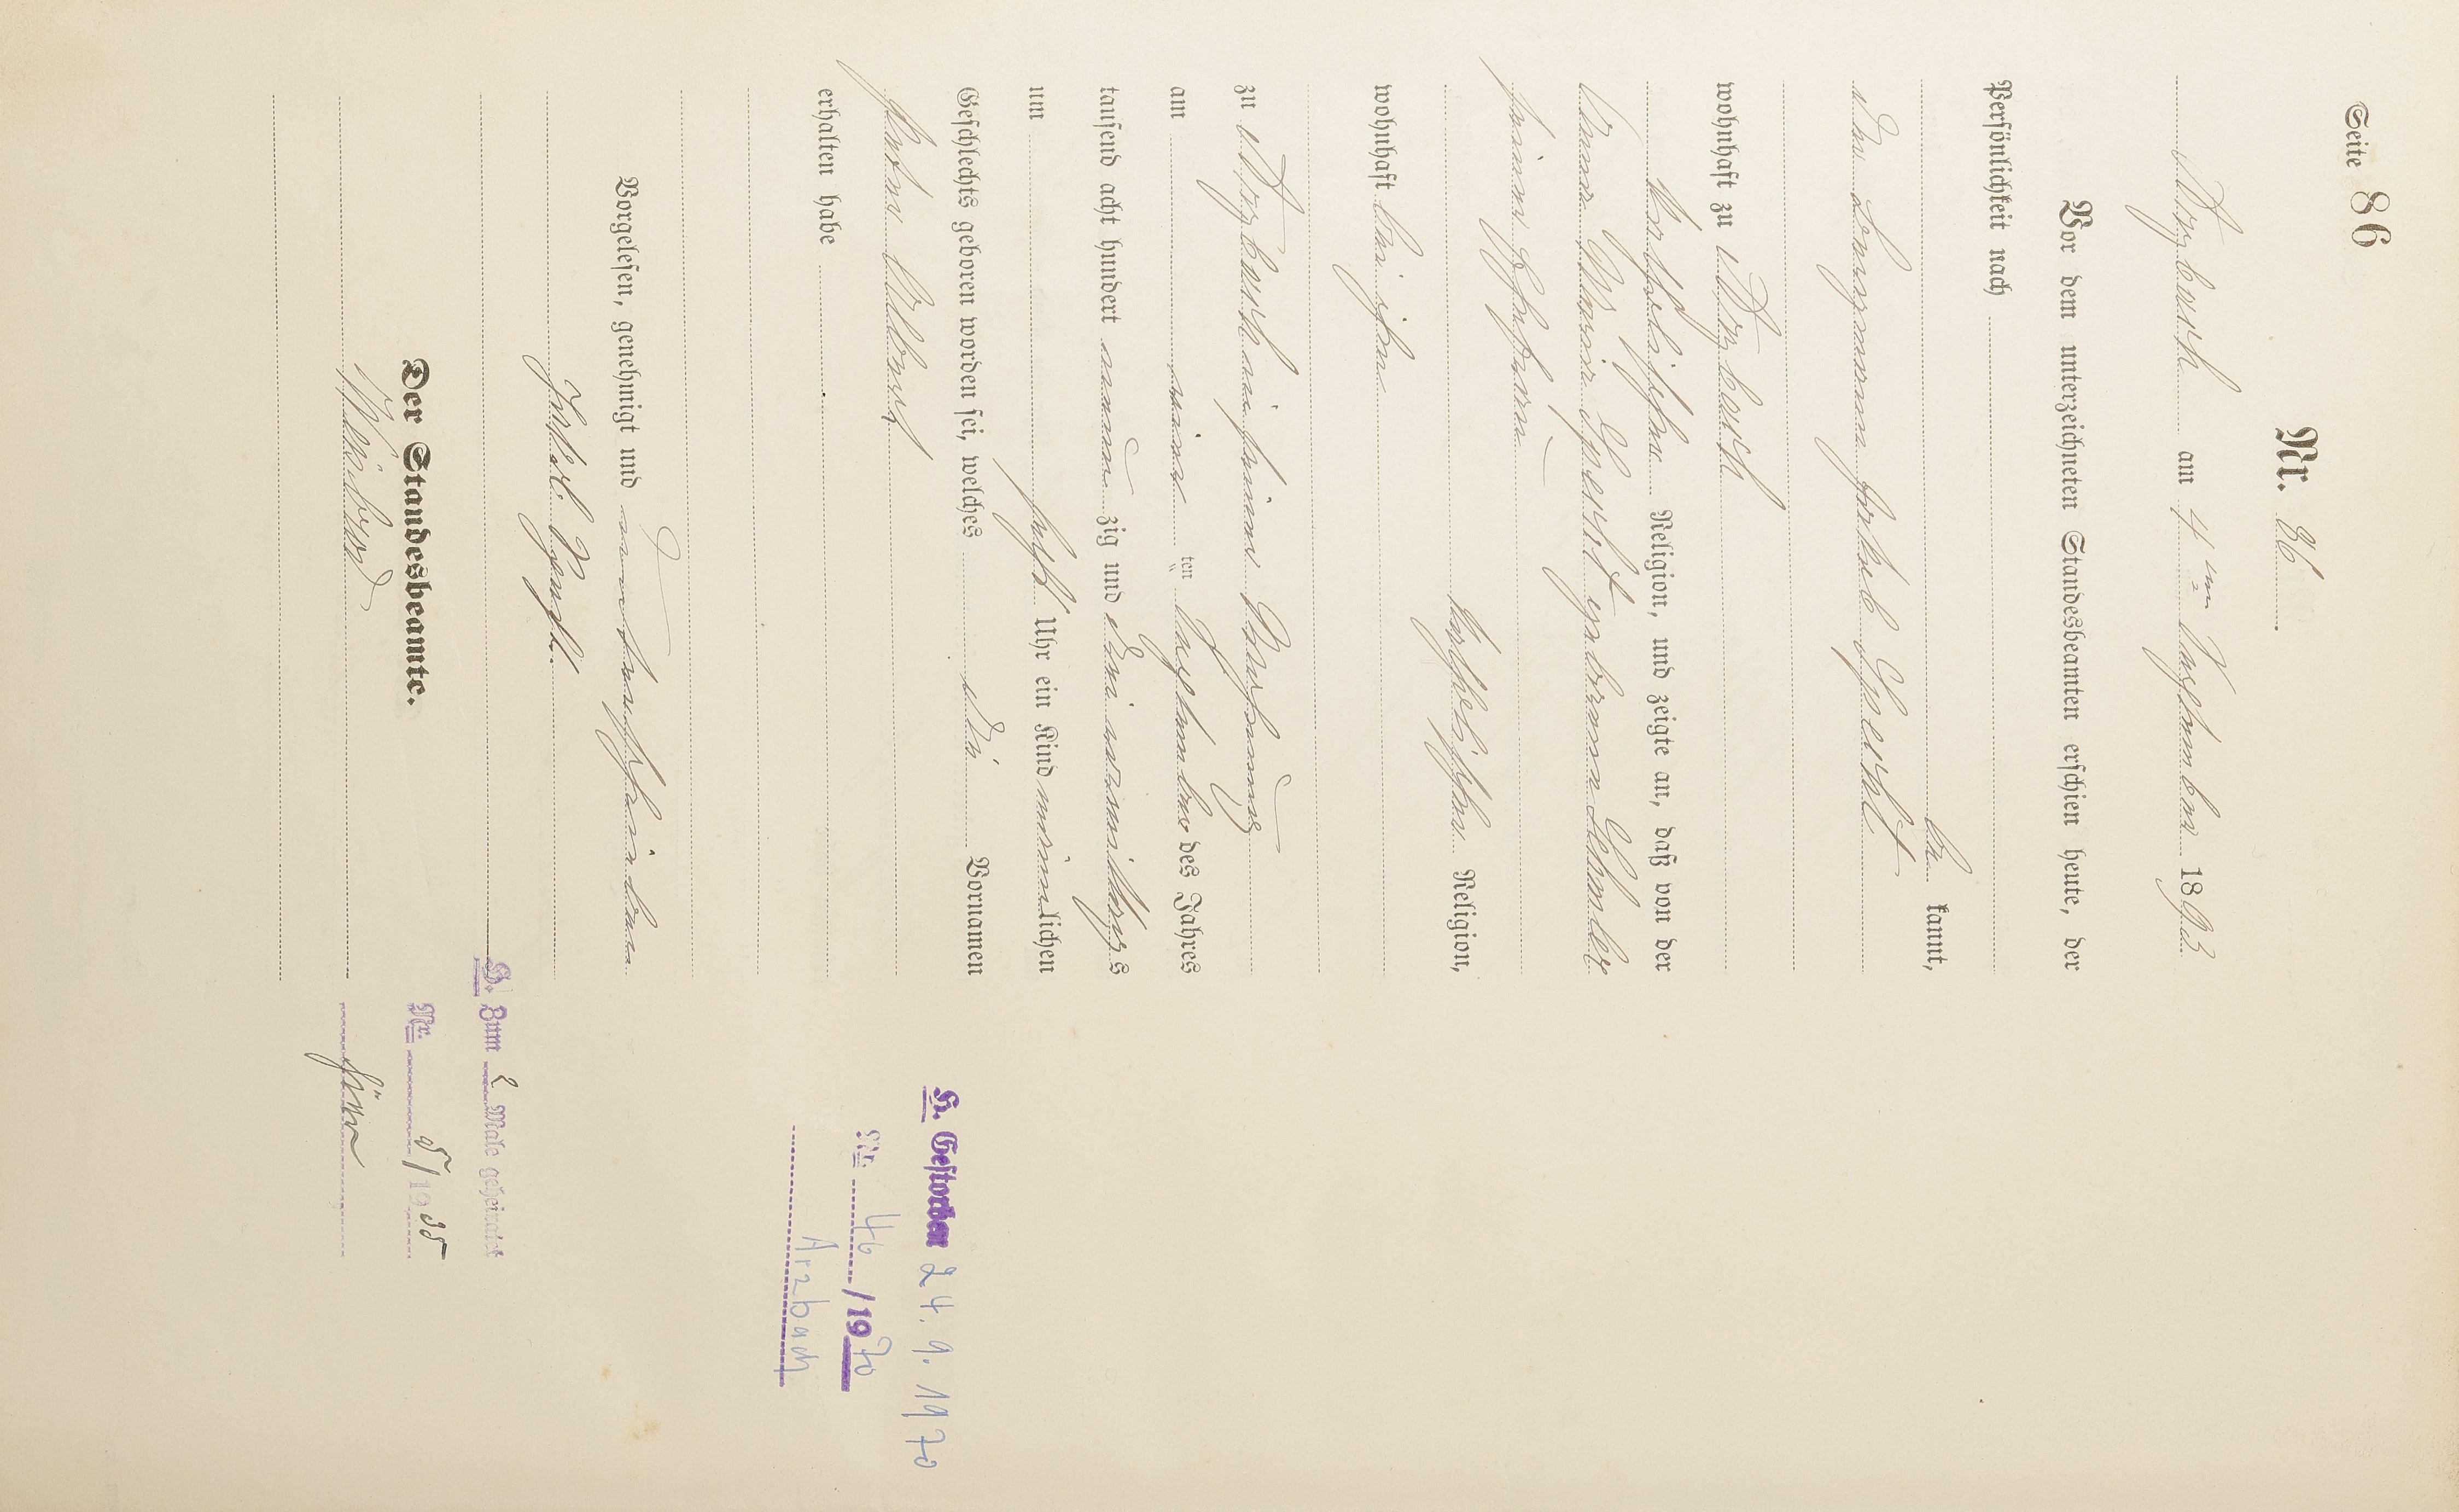 Seite 86
Nr. 86
Arzbach am 4ten September 1893
Vor dem unterzeichneten Standesbeamten erschien heute, der
Persönlichkeit nach
be kannt,
der Bergmann Jakob Specht
wohnhaft zu Arzbach
katholischer Religion, und zeigte an, daß von der
Anna Maria Specht geborene
seiner Ehefrau
katholischer Religion,
wohnhaft bei ihm
zu Arzbach in seiner Behausung
am ten September des Jahres
tausend acht hundert neun zig und drei Vormittags
um Uhr ein Kind männlichen
Geschlechts geboren worden sei, welches die Vornamen
Peter Albert
erhalten habe
Vorgelesen, genehmigt und unterschrieben
Jakob Specht
Der Standesbeamte.
H. Zum Male geheiratet
Nr. /19
H. Gestorben 24.9.1970
Nr. 46/1970
Arzbach